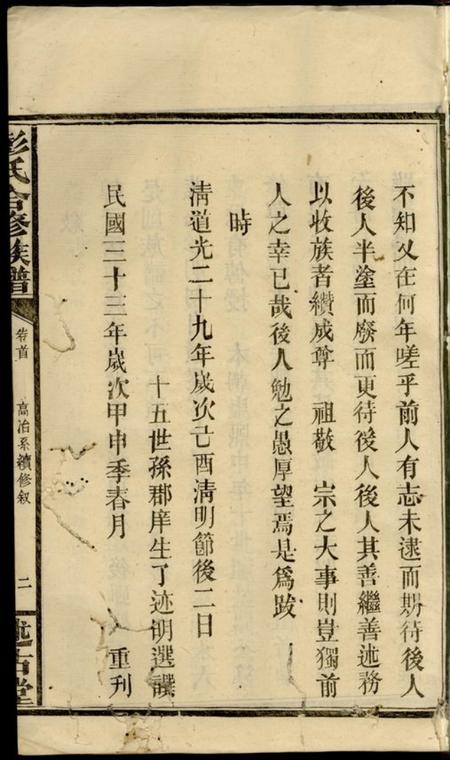 不知又在何年嗟乎前人有志未逮而期待後人
後人半塗而廢而更待後人後人其善繼善述務
以收族者纘成尊 祖敬 宗之大事則豈獨前
人之幸已哉後人勉之愚厚望焉是爲跋
時
清道光二十九年歲次己酉清明節後二日
十五世孫郡庠生了迹明選譔
民國三十三年歲次甲申季春月 重刊
彭氏合修族譜
卷首
高冶系續修叙
二
述古堂